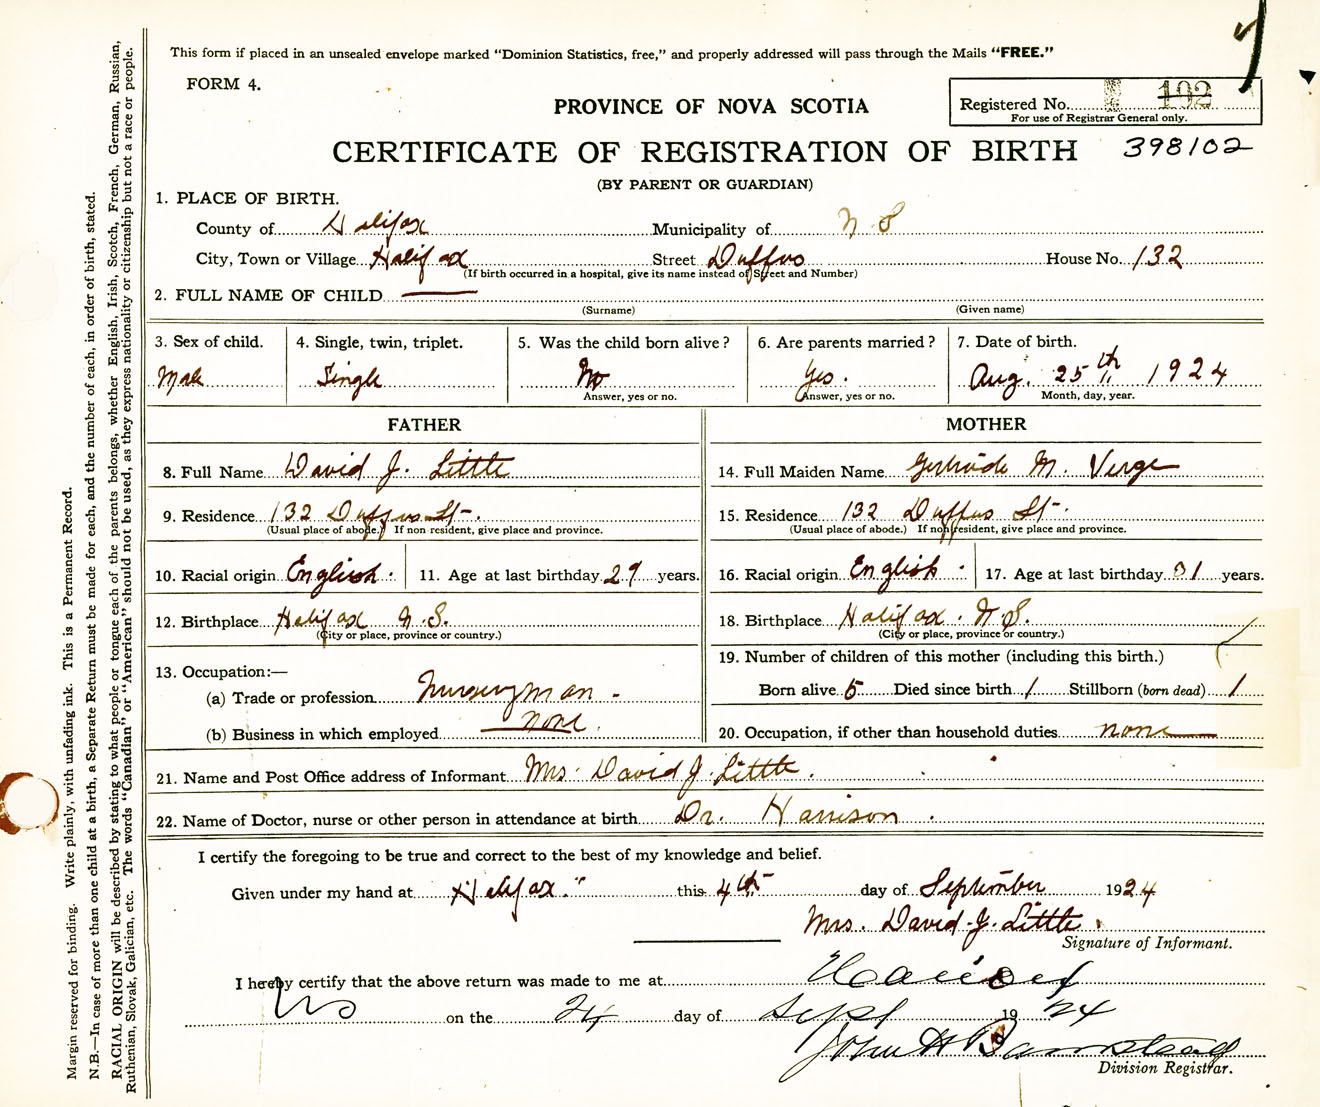 This form if placed in an unsealed envelope marked “Dominion Statistics, free,” and properly addressed will pass through the Mails “FREE.”
FORM 4.
PROVINCE OF NOVA SCOTIA
Registered No. 102
For use of Registrar General only.
CERTIFICATE OF REGISTRATION OF BIRTH 398102
(BY PARENT OR GUARDIAN)
1. PLACE OF BIRTH.
County of Halifax Municipality of N. S
City, Town or Village Halifax Street Duffus House No. 132
(If birth occurred in a hospital, give its name instead of Street and Number)
2. FULL NAME OF CHILD
(Surname) (Given name)
3. Sex of child. 4. Single, twin, triplet. 5. Was the child born alive? 6. Are parents married? 7. Date of birth.
Male Single No Yes. Aug. 25th 1924
Answer, yes or no. Answer, yes or no. Month, day, year.
FATHER MOTHER
8. Full Name David J. Little 14. Full Maiden Name Gertrude M. Verge
9. Residence 132 Duffus St. 15. Residence 132 Duffus St.
(Usual place of abode.) If non-resident, give place and province. (Usual place of abode.) If non-resident, give place and province.
10. Racial origin English. 11. Age at last birthday 29 years. 16. Racial origin English. 17. Age at last birthday 31 years.
12. Birthplace Halifax N.S. 18. Birthplace Halifax. N.S.
(City or place, province or country.) (City or place, province or country.)
13. Occupation:— 19. Number of children of this mother (including this birth.)
(a) Trade or profession Nurseryman - Born alive 5 Died since birth 1 Stillborn (born dead) 1
(b) Business in which employed none. 20. Occupation, if other than household duties none
21. Name and Post Office address of Informant Mrs. David J. Little.
22. Name of Doctor, nurse or other person in attendance at birth Dr. Harrison.
I certify the foregoing to be true and correct to the best of my knowledge and belief.
Given under my hand at Halifax. this 4th day of September 1924
Mrs. David J. Little.
Signature of Informant.
I hereby certify that the above return was made to me at Halifax
NS on the 24 day of Sept 1924
John H Barnstead
Division Registrar.
Margin reserved for binding. Write plainly, with unfading ink. This is a Permanent Record.
N.B.—In case of more than one child at a birth, a Separate Return must be made for each, and the number of each, in order of birth, stated.
RACIAL ORIGIN will be described by stating to what people or tongue each of the parents belongs, whether English, Irish, Scotch, French, German, Russian,
Ruthenian, Slovak, Galician, etc. The words “Canadian” or “American” should not be used, as they express nationality or citizenship but not a race or people.